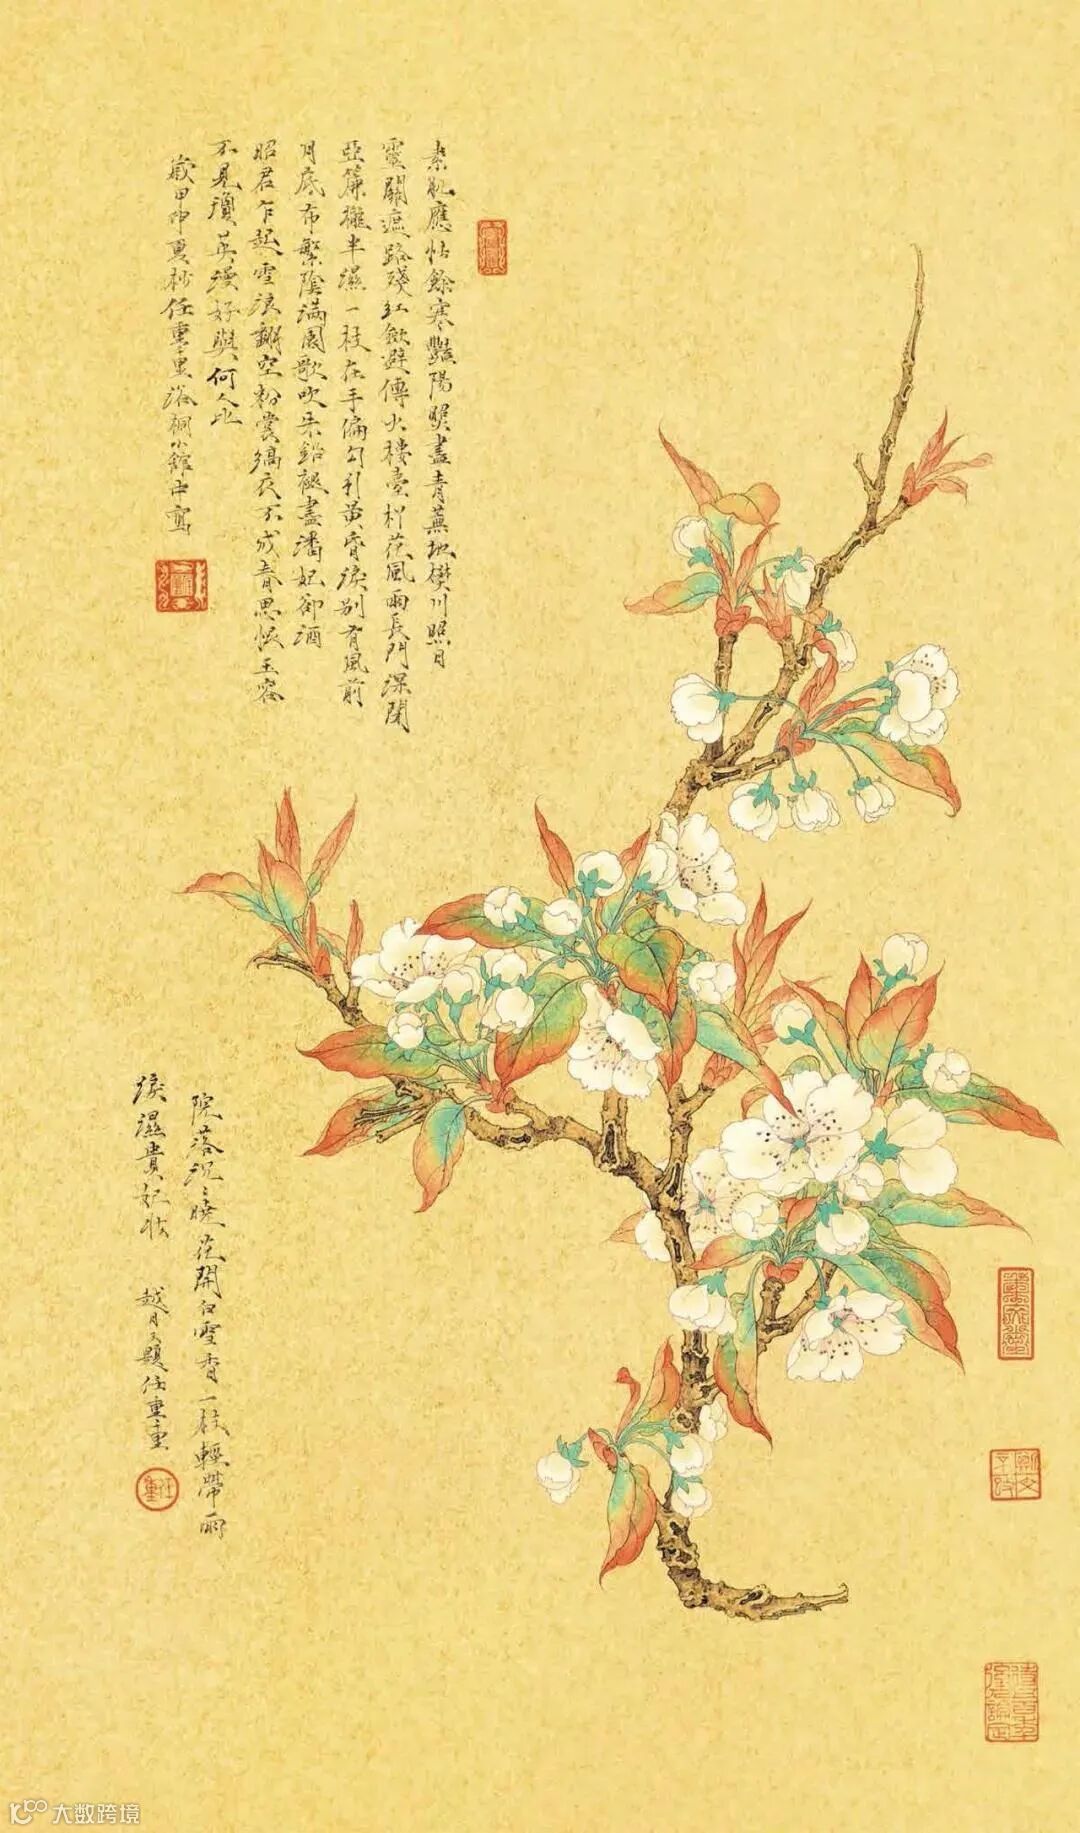 素肌應怯餘寒豔陽盡青蕪地樊川照日
靈關遮路殘紅斂避傳火樓臺妒花風雨長門深閉
亞簾櫳半濕一枝在手偏勾引黃昏淚別有風前
月底布繁陰滿園歌吹朱鉛褪盡潘妃卻酒
昭君乍起雪浪翻空粉裳縞夜不成春思恨玉容
不見瓊英漫好與何人比
歲甲申夏杪任重重浴桐小館中寫
院落沉沉曉花開白雪香一枝輕帶雨
淚濕貴妃妝
越月又題任重重
任重
大数跨境